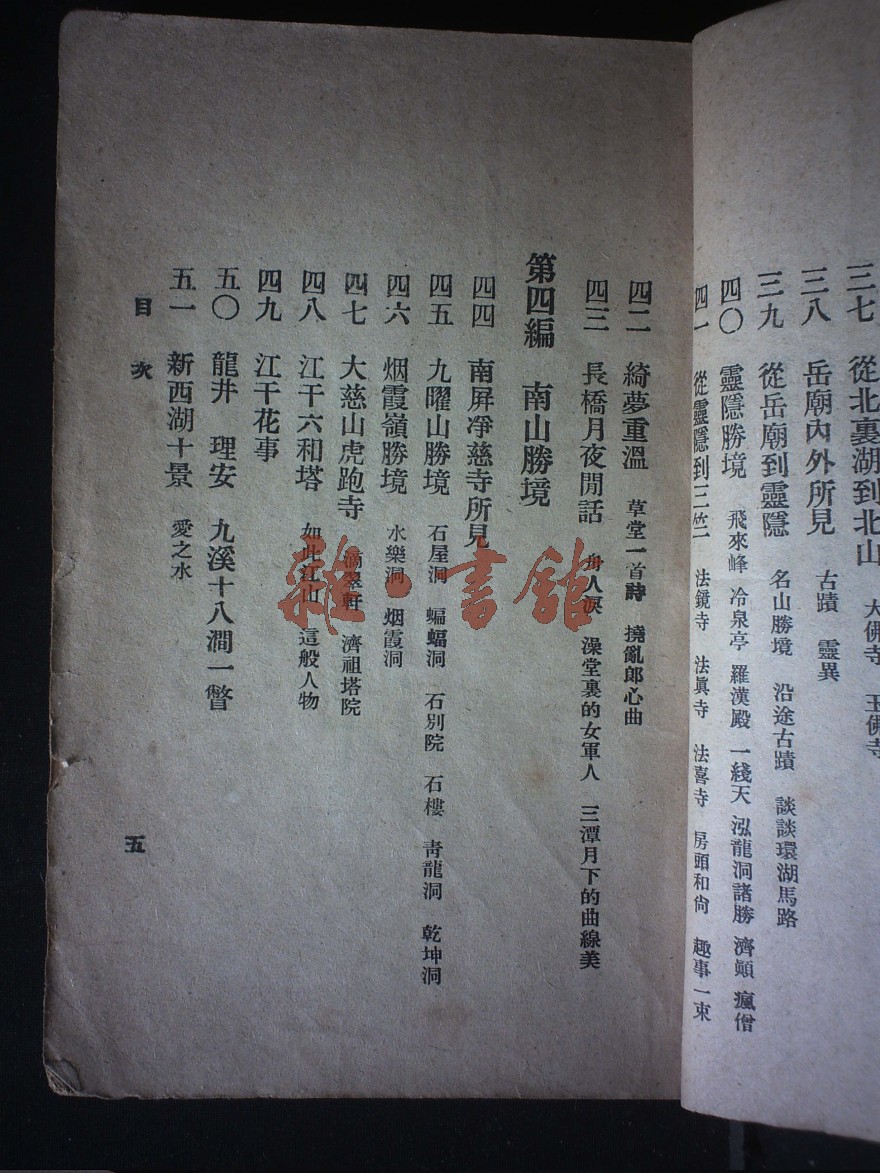 三七 從北裏湖到北山 大佛寺 玉佛寺
三八 岳廟內外所見 古蹟 靈異
三九 從岳廟到靈隱 名山勝境 沿途古蹟 談談環湖馬路
四〇 靈隱勝境 飛來峰 冷泉亭 羅漢殿 一綫天 泓龍洞諸勝 濟顚 瘋僧
四一 從靈隱到三竺 法鏡寺 法眞寺 法喜寺 房頭和尙 趣事一束
四二 綺夢重溫 草堂一首詩 撓亂郎心曲
四三 長橋月夜閒話 舟人淚 澡堂裏的女軍人 三潭月下的曲線美
第四編 南山勝境
四四 南屏凈慈寺所見
四五 九曜山勝境 石屋洞 蝙蝠洞 石別院 石樓 靑龍洞 乾坤洞
四六 烟霞嶺勝境 水樂洞 烟霞洞
四七 大慈山虎跑寺 滴翠軒 濟祖塔院
四八 江干六和塔 如此江山 這般人物
四九 江干花事
五〇 龍井 理安 九溪十八澗一瞥
五一 新西湖十景 愛之水
目次
五
雜·書館